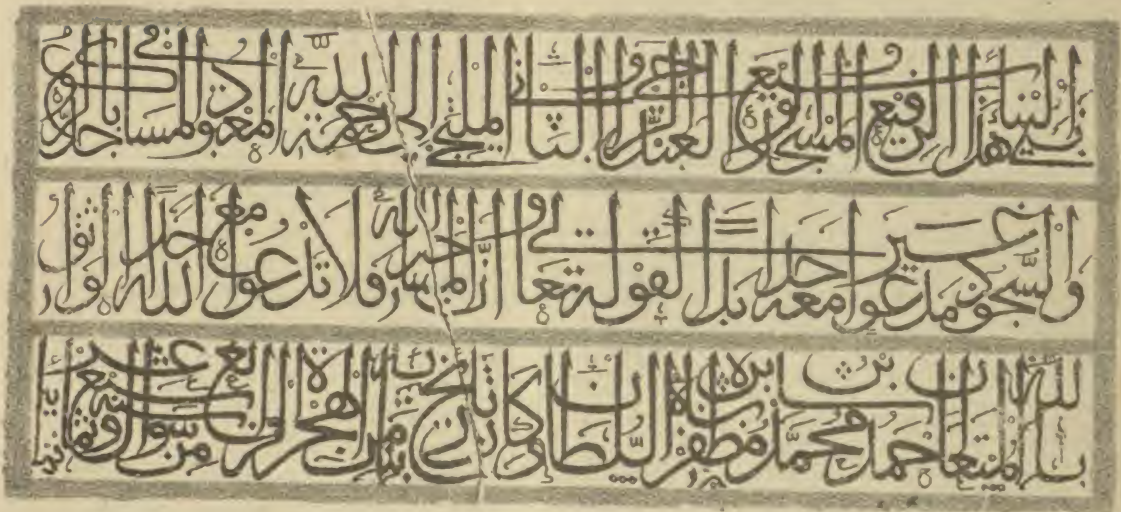 بنى هذا البناء الرفيع والمسجد الوسيع العبد الراجي الملتجي الى رحمة الله المعبود في المساجد بالركوع
والسجود غير مدعو معه احدا لقوله تعالى وان المساجد لله فلا تدعوا مع الله احدا الواثق
بالله المستعان احمد شاه بن محمد شاه بن مظفر شاه السلطان وكان تاريخ من الهجرة الرابع من شوال سنة سبع عشر وثمانمائة